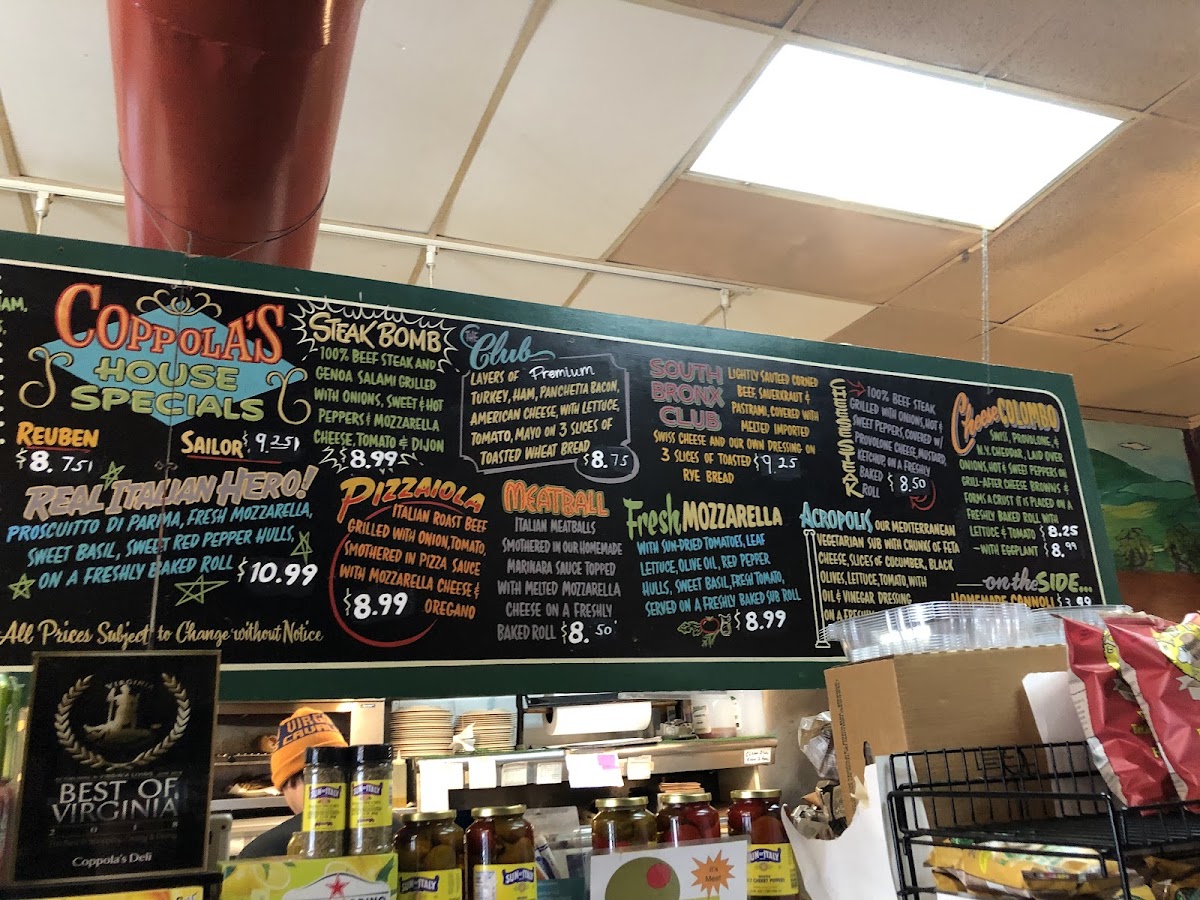 AM,
COPPOLA'S
HOUSE
SPECIALS
REUBEN
$8.75
SAILOR $9.25
STEAK BOMB
100% BEEF STEAK AND
GENOA SALAMI GRILLED
WITH ONIONS, SWEET & HOT
PEPPERS & MOZZARELLA
CHEESE, TOMATO & DIJON
$8.99
THE Club
LAYERS OF Premium
TURKEY, HAM, PANCHETTA BACON,
AMERICAN CHEESE, WITH LETTUCE,
TOMATO, MAYO ON 3 SLICES OF
TOASTED WHEAT BREAD
$8.75
SOUTH
BRONX
CLUB
LIGHTLY SAUTEED CORNED
BEEF, SAUERKRAUT &
PASTRAMI, COVERED WITH
MELTED IMPORTED
SWISS CHEESE AND OUR OWN DRESSING ON
3 SLICES OF TOASTED
RYE BREAD
$9.25
100% BEEF STEAK
GRILLED WITH ONIONS, HOT &
SWEET PEPPERS, COVERED W/
PROVOLONE CHEESE, MUSTARD,
KETCHUP, ON A FRESHLY
BAKED
ROLL
$8.50
Cheese COLOMBO
SWISS, PROVOLONE, &
N.Y. CHEDDAR, LAID OVER
ONIONS, HOT & SWEET PEPPERS ON
GRILL-AFTER CHEESE BROWNS &
FORMS A CRUST IT IS PLACED ON A
FRESHLY BAKED ROLL WITH
LETTUCE & TOMATO $8.25
-WITH EGGPLANT $8.99
REAL ITALIAN HERO!
PROSCUITTO DI PARMA, FRESH MOZZARELLA,
SWEET BASIL, SWEET RED PEPPER HULLS,
ON A FRESHLY BAKED ROLL $10.99
PIZZAIOLA
ITALIAN ROAST BEEF
GRILLED WITH ONION, TOMATO,
SMOTHERED IN PIZZA SAUCE
WITH MOZZARELLA CHEESE &
OREGANO
$8.99
MEATBALL
ITALIAN MEATBALLS
SMOTHERED IN OUR HOMEMADE
MARINARA SAUCE TOPPED
WITH MELTED MOZZARELLA
CHEESE ON A FRESHLY
BAKED ROLL $8.50
Fresh MOZZARELLA
WITH SUN-DRIED TOMATOES, LEAF
LETTUCE, OLIVE OIL, RED PEPPER
HULLS, SWEET BASIL, FRESH TOMATO,
SERVED ON A FRESHLY BAKED SUB ROLL
$8.99
ACROPOLIS OUR MEDITERRANEAN
VEGETARIAN SUB WITH CHUNKS OF FETA
CHEESE, SLICES OF CUCUMBER, BLACK
OLIVES, LETTUCE, TOMATO, WITH
OIL & VINEGAR DRESSING
ON A FRESHLY
on the SIDE...
HOMEMADE CANNOLI $3.99
All Prices Subject to Change without Notice
VIRGINIA
BEST OF
VIRGINIA
Coppola's Deli
SUN of ITALY
SUN of ITALY
SUN of ITALY
SUN of ITALY
SUN of ITALY